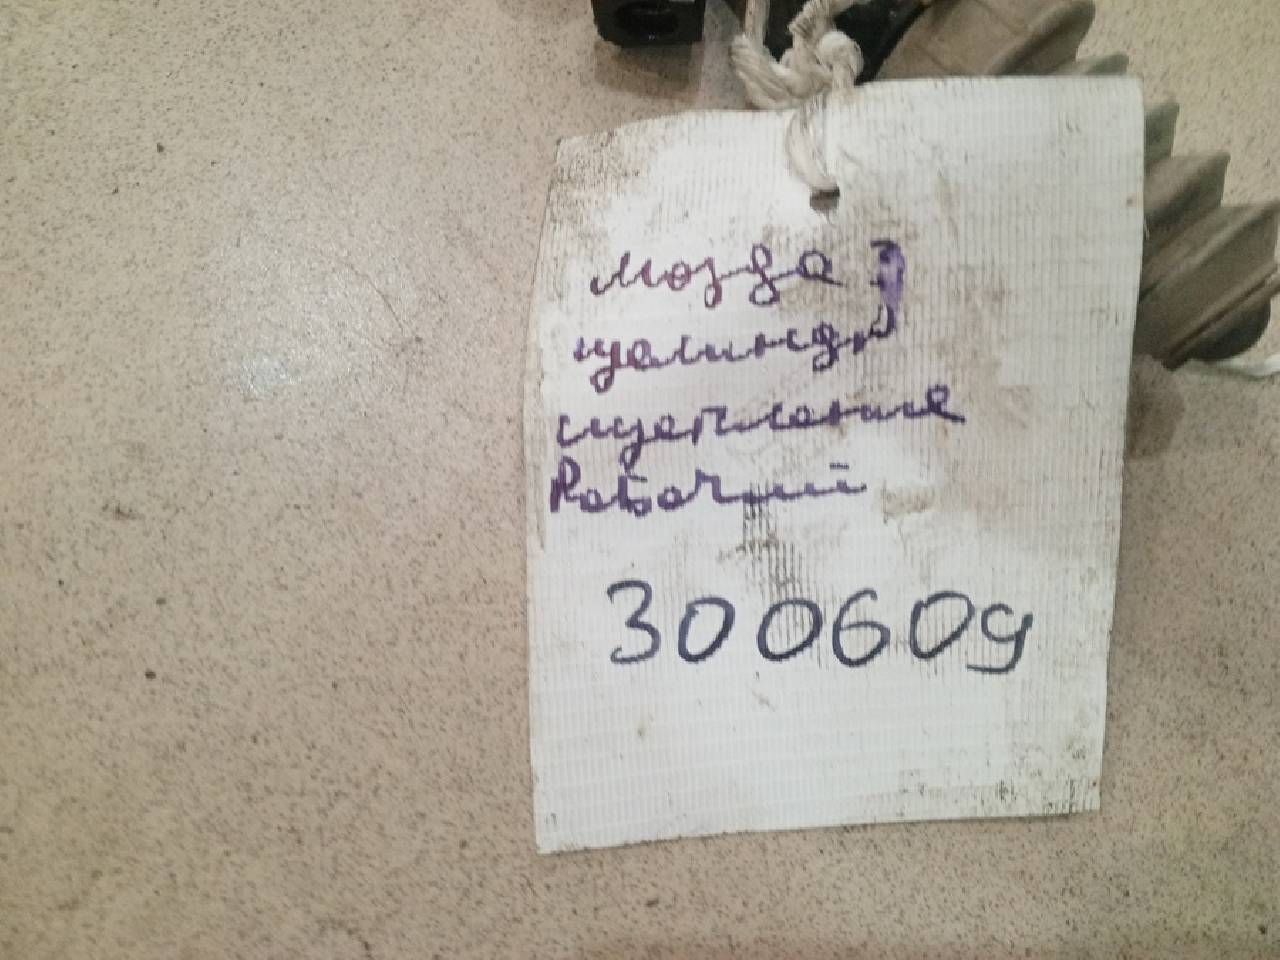 Мазда 3
цилиндр
сцепление
Рабочий
300609